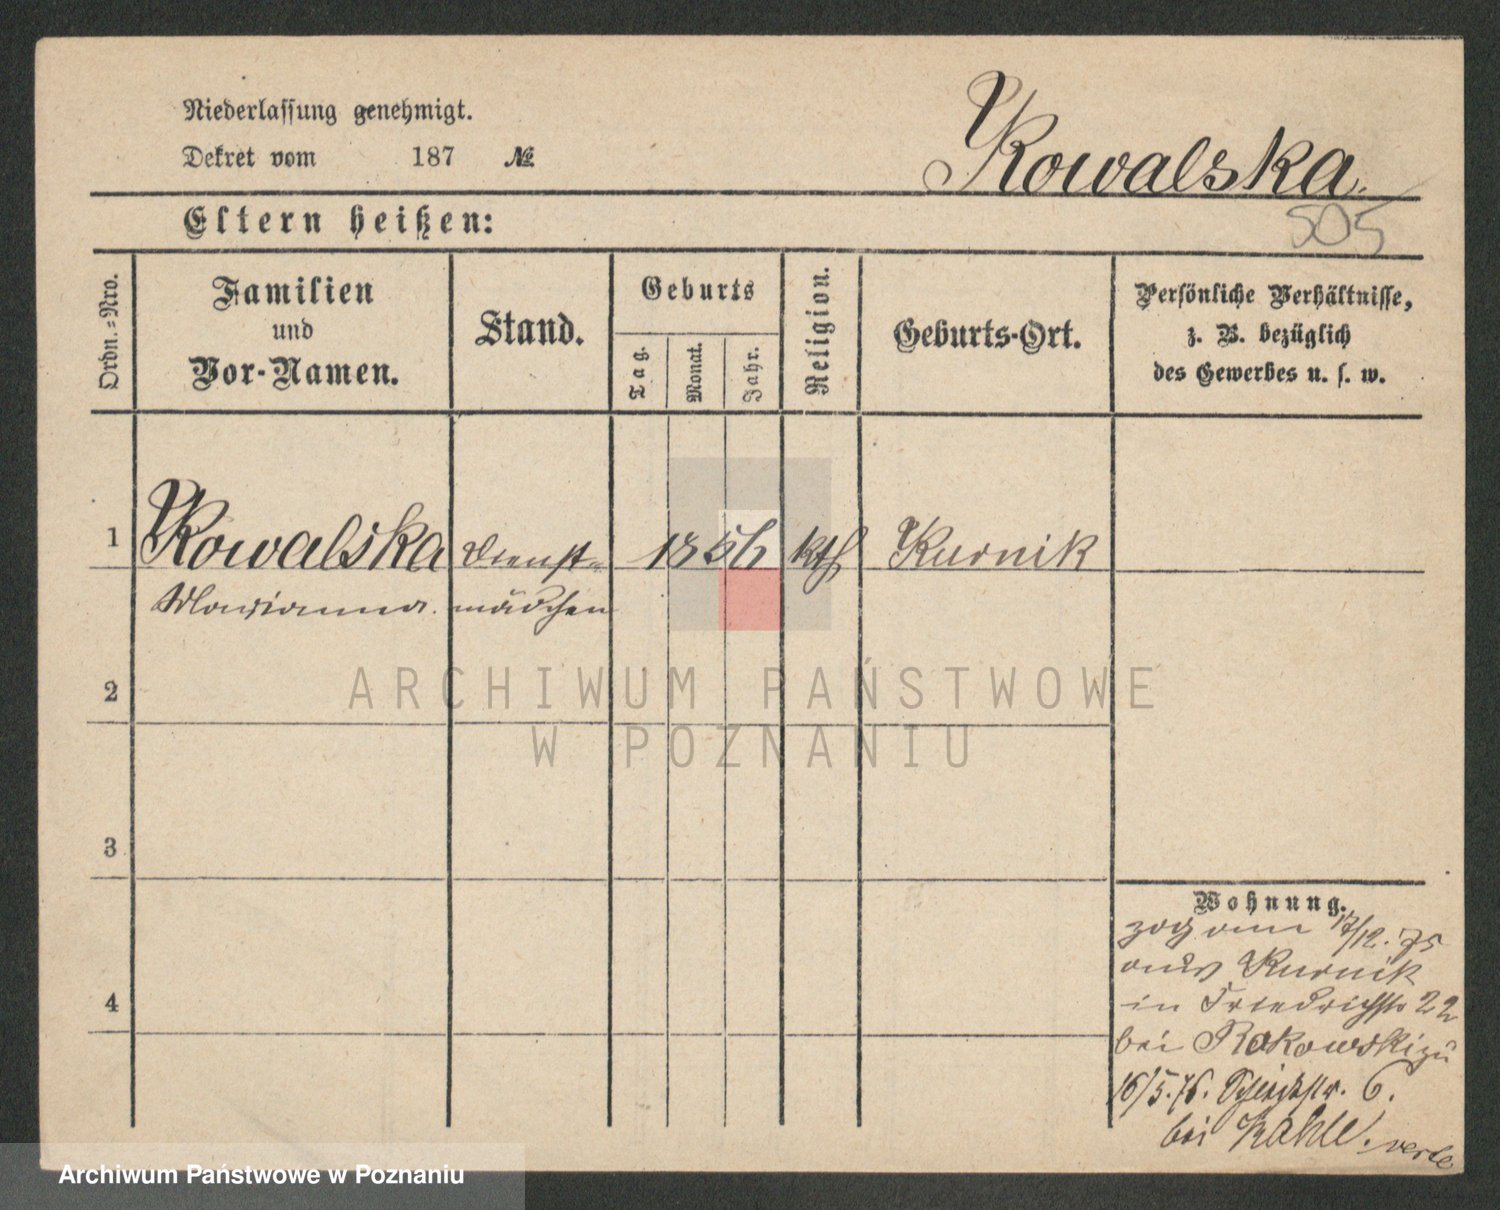 Niederlassung genehmigt.
Dekret vom 187 №
Kowalska.
505
Eltern heißen:
Ordn.=Nro.
Familien
und
Vor-Namen.
Stand.
Geburts
Tag.
Monat.
Jahr.
Religion.
Geburts-Ort.
Persönliche Verhältnisse,
z. B. bezüglich
des Gewerbes u. s. w.
1 Kowalska Dienst- 1856 kth Kurnik
Marianna. mädchen
2
3
4
ARCHIWUM PAŃSTWOWE
W POZNANIU
Wohnung.
zog am 17/12. 75
aus Kurnik
in Friedrichstr 22
bei Rakowski zu
16/5. 76. 6.
bei Kahle.
Archiwum Państwowe w Poznaniu